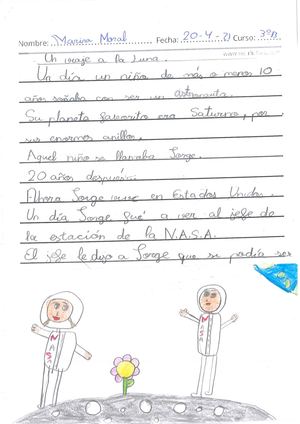 Nombre: Marisa Moral Fecha: 20-4-21 Curso: 3ºB
Un viaje a la Luna.
Un día un niño de más o menos 10
años soñaba con ser un astronauta.
Su planeta favorito era Saturno, por
sus enormes anillos.
Aquel niño se llamaba Jorge.
20 años después.
Ahora Jorge vive en Estados Unidos.
Un día Jorge fué a ver al jefe de
la estación de la N.A.S.A.
El jefe le dijo a Jorge que si podía ser
NASA
NASA